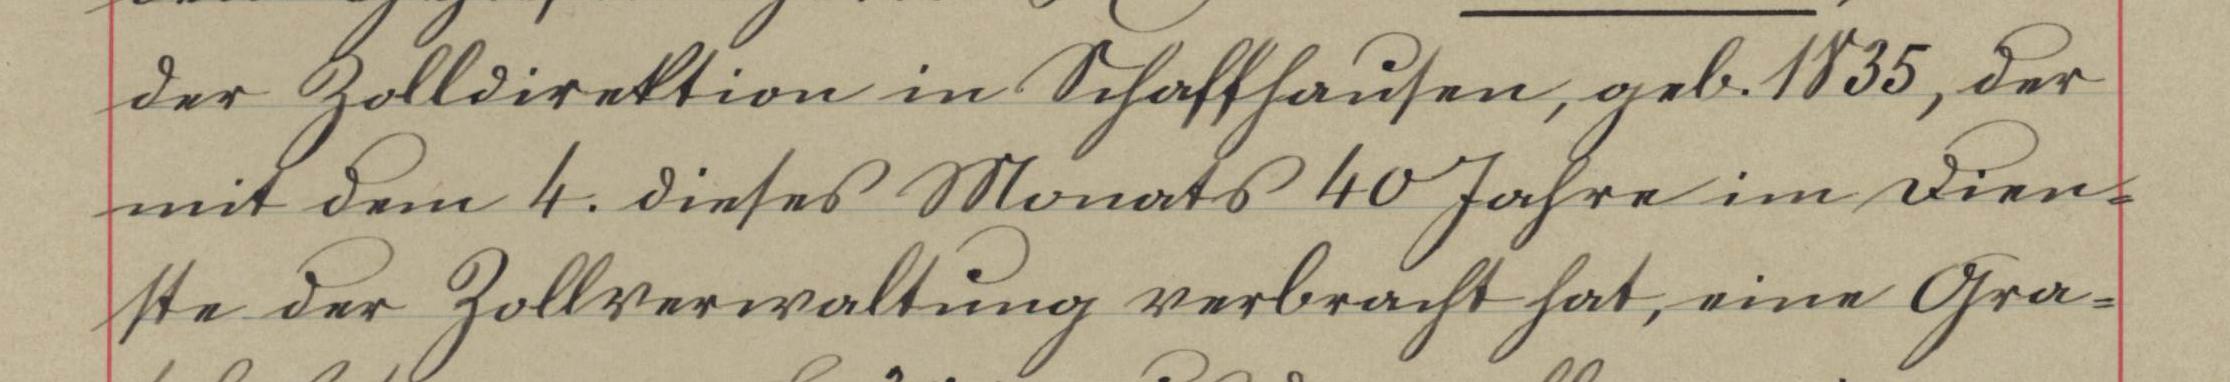 der Zolldirektion in Schaffhausen, geb. 1835, der
mit dem 4. dieses Monats 40 Jahre im Dien-
ste der Zollverwaltung verbracht hat, eine Gra-